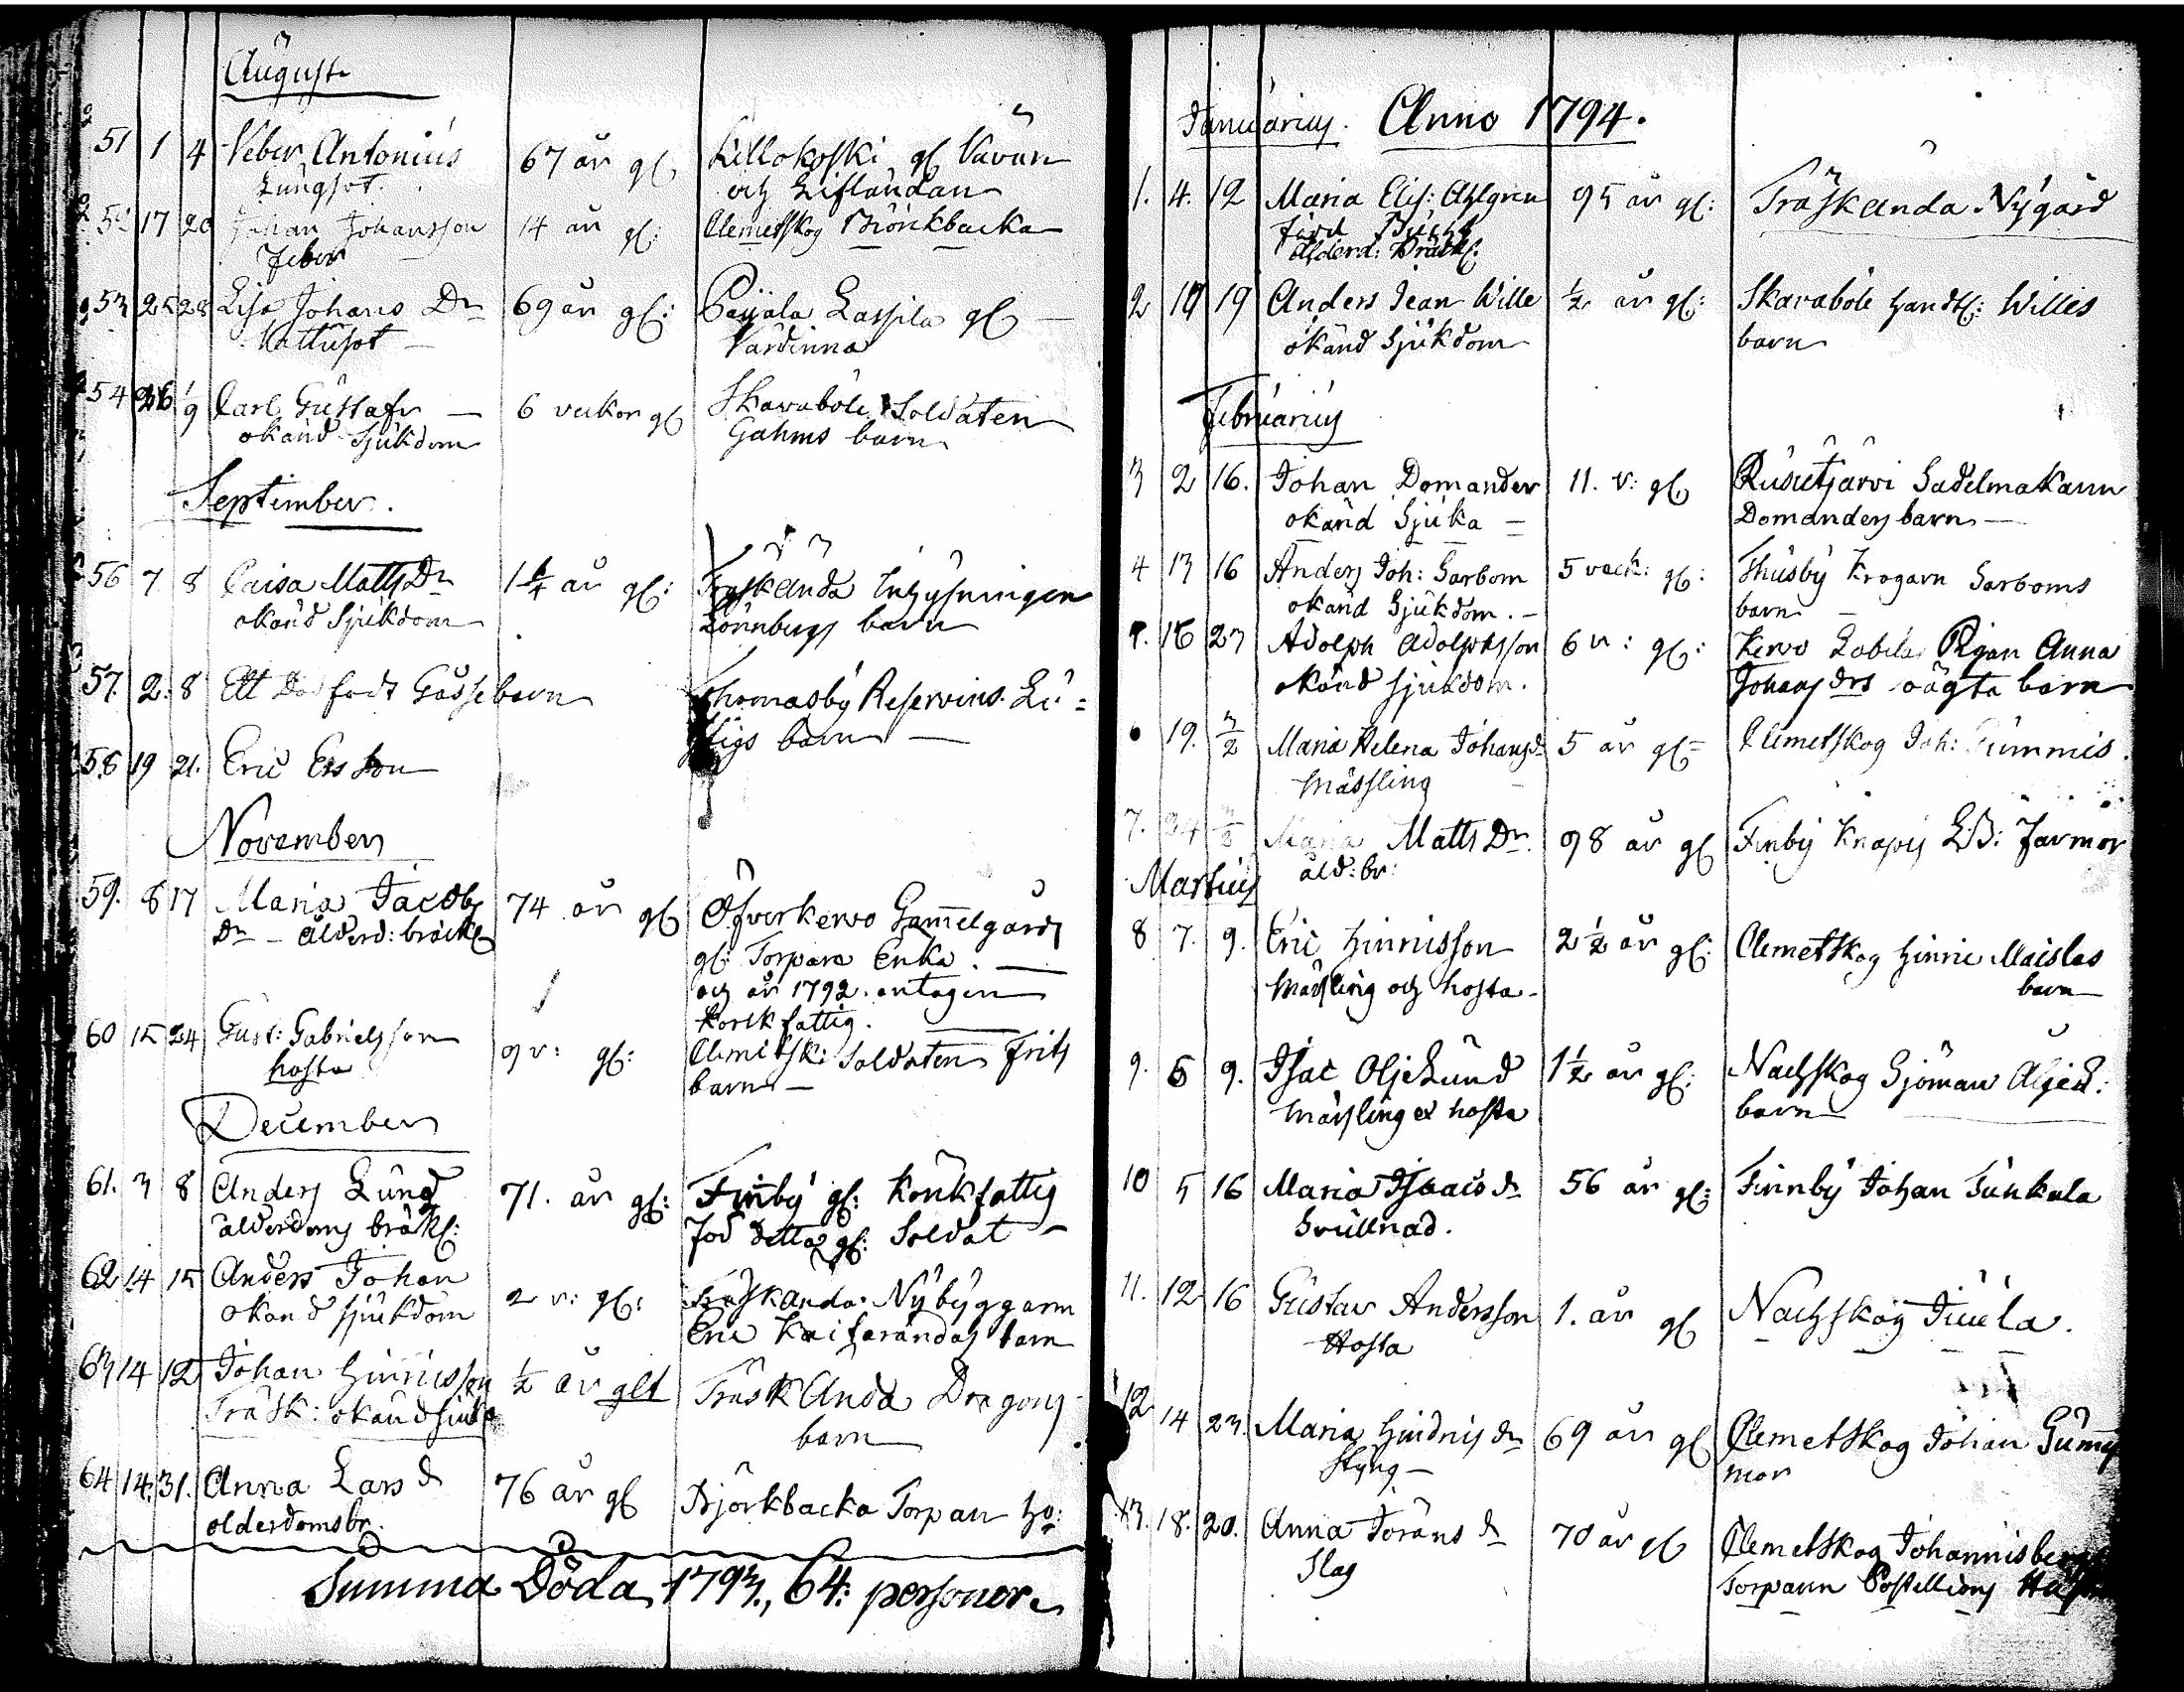 August
51 1 4 Veber Antonius 67 år gl. Killokoski gl Väfvare
Lungsot. och Lifländare
52 17 20 Johan Johansson 14 år gl: Clemetskog Biörkbacka
feber
53 25 28 Lisa Johans Dr 69 år gl: Paijala Lassila gl
Vattusot Värdinna
54 26 1/9 Carl Gustafs 6 veckor gl Skavaböle Soldaten
okänd Sjukdom Gahms barn
September.
56 7 8 Caisa Matts Dr 1 1/4 år gl: Träskända Inhysningen
okänd Sjukdom Lönnbergs barn
57. 2. 8 Ett Dödfödt Gossebarn Thomasby Reservens. Lu=
stigs barn
58 19 21. Eric Ersson
November
59. 8 17 Maria Jacobs 74 år gl Öfverkervo Gammelgårds
Dr - ålderd: bräckl gl: Torpare Enka.
och år 1792. antagen
kyrkfattig.
60 15 24 Gust: Gabrielsson 9 v: gl: Clemetsk: Soldaten Frits
hosta barn
December
61. 3 8 Anders Lund 71. år gl: Finby gl: kyrkfattig
ålderdoms bräckl: före detta gl: Soldat
62 14 15 Anders Johan 2 v: gl: Träskända Nybyggaren
okänd sjukdom Eric barn
63 14 12 Johan Hinricsson 1/2 år glt Träskända Dragons
Träsk: okänd sjukd barn
64 14. 31. Anna Lars d 76 år gl Björkbacka Torpare
olderdomsbr.
Summa Döda 1793., 64: personer.
Januarius. Anno 1794.
1. 4. 12 Maria Elis: Ahlgren 95 år gl: Träskända Nygård
född
ålderd: bräckl:
2 10 19 Anders Jean Wille 1/2 år gl: Skavaböle Handtl: Willes
okänd Sjukdom barn
Februarius
3 2 16. Johan Domander 11. v: gl Rusutjärvi Sadelmakaren
okänd Sjuka Domanders barn
4 13 16 Anders Joh: Sarbom 5 veck: gl: Thusby Krögaren Sarboms
okänd Sjukdom. barn
5. 16 23 Adolph Adolphsson 6 v: gl: Kervo Pigan Anna
okänd sjukdom. Johans drs oägta barn
19. 3/2 Maria Helena Johansd 5 år gl= Clemetskog Joh: Gummis.
Mässling
7. 24 Maria Matts Dr. 98 år gl Finby Knapas farmor
åld: br:
Martius
8 7. 9. Eric Hinrisson 2 1/2 år gl: Clemetskog Hinric Maislas
Mässling och hosta. barn
9. 6 9. Isac OljeLund 1 1/2 år gl: Nachskog Sjöman OljeL:
Mässling et hosta barn
10 5 16 Maria Isaacs d 56 år gl: Finnby Johan Tunkala
Svullnad.
11. 12 16 Gustav Andersson 1. år gl Nachskog Juula.
Hosta
12 14 23. Maria Hindrics dr 69 år gl Clemetskog Johan Gummis
Styng mor
13. 18. 20. Anna Jörans d 70 år gl Clemetskog Johannisberg
Slag Torparen Postillions